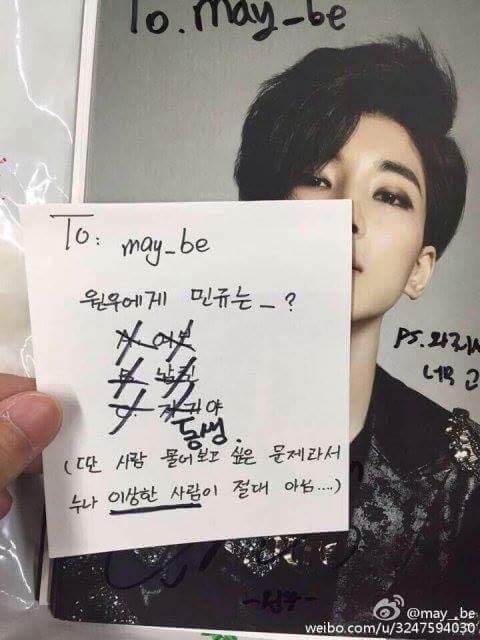 To. may_be
To: may_be
원우에게 민규는 _ ?
A. 여보
B. 남친
C. 자기야
동생.
(딴 사람 물어보고 싶은 문제라서
누나 이상한 사람이 절대 아님....)
PS.
너무 고
-원우-
@may_be
weibo.com/u/3247594030